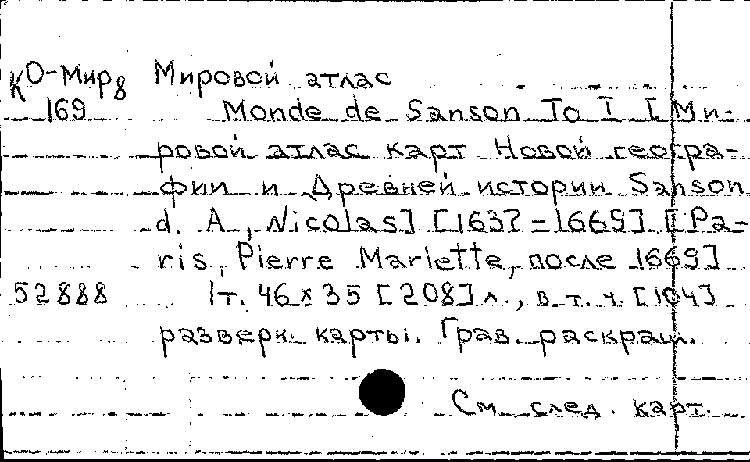 КО-Мир8 Мировой атлас
169 Monde de Sanson To I [Ми-
ровой атлас карт Новой геогра-
фии и Древней истории Sanson
d. A., Nicolas] [1637-1669] [Pa-
ris, Pierre Mariette, после 1669]
52888 1т. 46x35 [208] л., в т. ч. [104]
разверн. карты. Грав. раскраш.
См. след. карт.